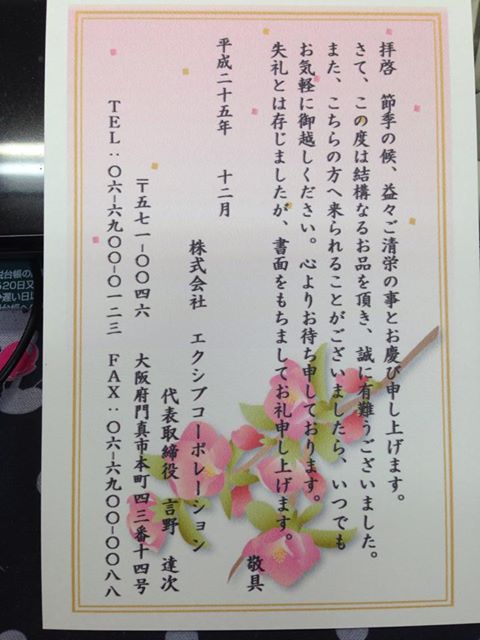 拝啓　節季の候、益々ご清栄の事とお慶び申し上げます。
さて、この度は結構なるお品を頂き、誠に有難うございました。
また、こちらの方へ来られることがございましたら、いつでも
お気軽に御越しください。心よりお待ち申しております。
失礼とは存じましたが、書面をもちましてお礼申し上げます。
敬具
平成二十五年　十二月
株式会社　エクシブコーポレーション
代表取締役　言野　達次
〒五七一-〇〇四六　大阪府門真市本町四三番十四号
TEL:〇六-六九〇〇-〇一二三　FAX:〇六-六九〇〇-〇〇八八